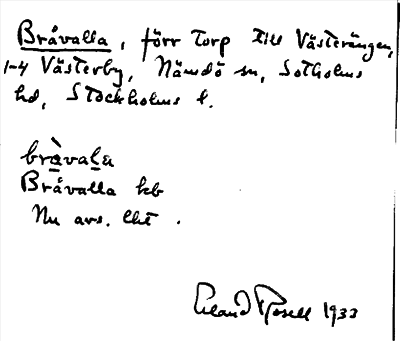 Bråvalla, förr torp till Västerängen,
1-4 Västerby, Nämdö sn, Sotholms
hd, Stockholms l.
bràvala
Bråvalla kb
Nu avs. lht.
Erland Rosell 1933